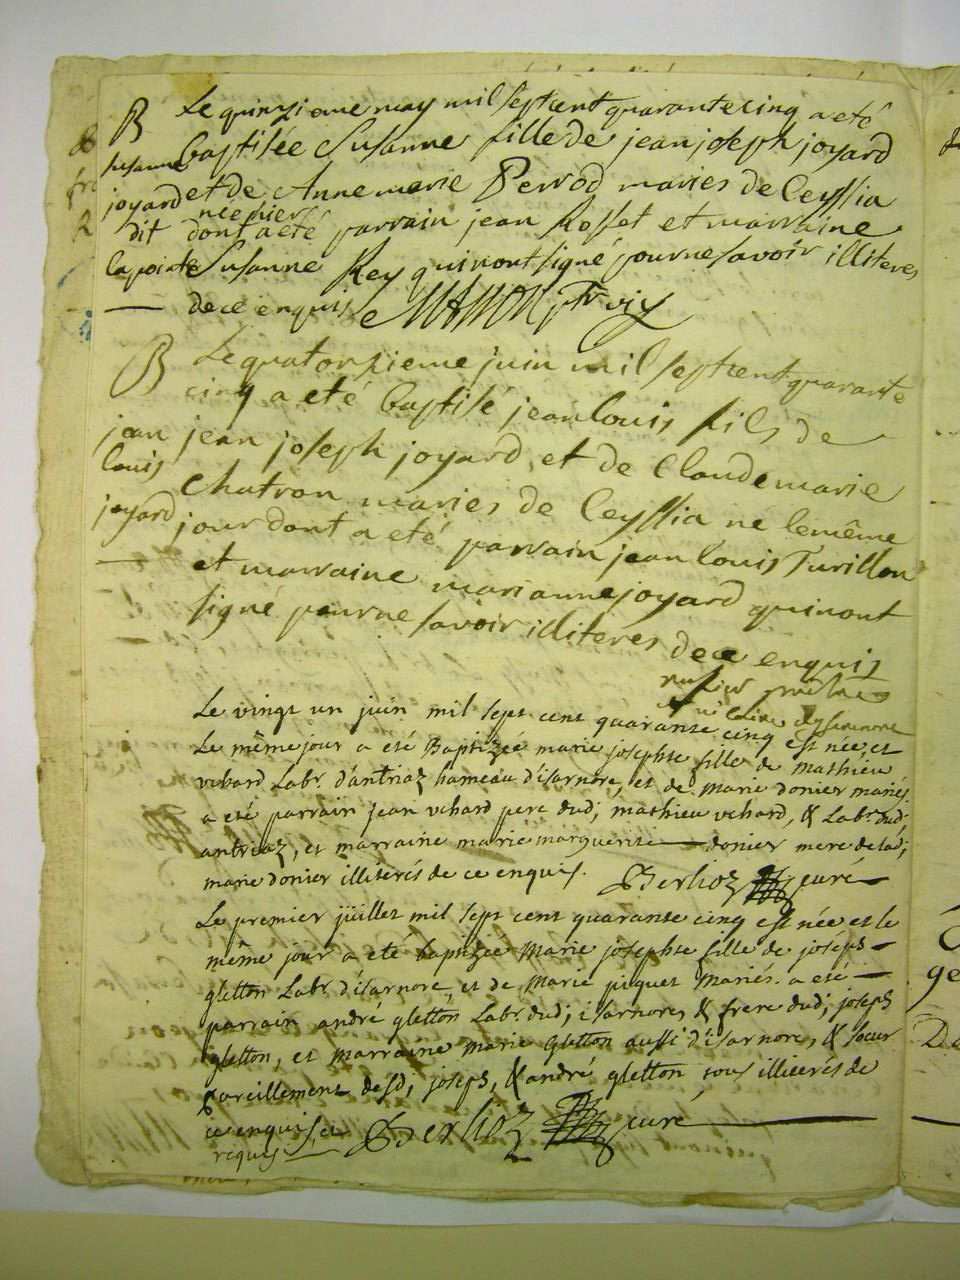 B
Le quinzieme may mil septcent quarantecinq a eté
susanne
baptisée Susanne fille de jean joseph joyard
joyard
et de Anne marie Perrod maries de Ceyssia
dit
née hier
dont a eté parrain jean Rosset et marraine
lapointe
Susanne Rey qui nont signé pour ne savoir illiteres
de ce enquis
B
Le quatorzieme juin mil septcent quarante
cinq a eté baptisé jean louis fils de
jean louis joyard
jean joseph joyard et de Claudemarie
Chatron maries de Ceyssia né le même
jour dont a eté parrain jean louis Turillon
et marraine marianne joyard qui nont
signé pour ne savoir illiteres de ce enquis
Le vingt un juin mil sept cent quarante cinq est née, et
Le même jour a eté Baptizée marie josephte fille de mathieu
vuhard Labr. d'antriaz hameau d'isarnore, et de marie donier mariés
a eté parrain jean vuhard pere dud; mathieu vuhard, & Labr. dud;
antriaz, et marraine marie marguerite donier mere de lad;
marie donier illiterés de ce enquis. Berlioz curé
Le premier jüillet mil sept cent quarante cinq est née et le
même jour a eté baptizée Marie josephte fille de joseph
gletton Labr. d'isarnore, et de Marie piquet Mariés. a eté
parrain andré gletton Labr. dud; isarnore, & frere dud; joseph
gletton, et marraine marie gletton aussi d'isarnore, & soeur
pareillement desd; joseph, & andré gletton, tous illiterés de
ce enquis, et
requis Berlioz curé